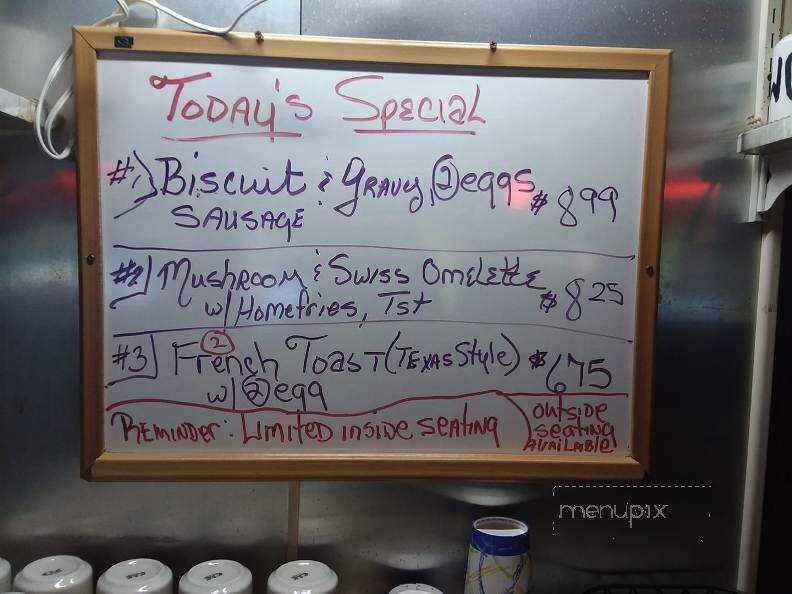 TODAY'S SPECIAL
#1) Biscuit & GRAVY, 2 eggs $8.99
SAUSAGE
#2) MUSHROOM & SWISS OMELETTE $8.25
w/ Homefries, Tst
#3) 2 French TOAST (TEXAS Style) $6.75
w/ 2 egg
REMINDER: LIMITED INSIDE SEATING
OUTSIDE
SEATING
AVAILABLE
menupix